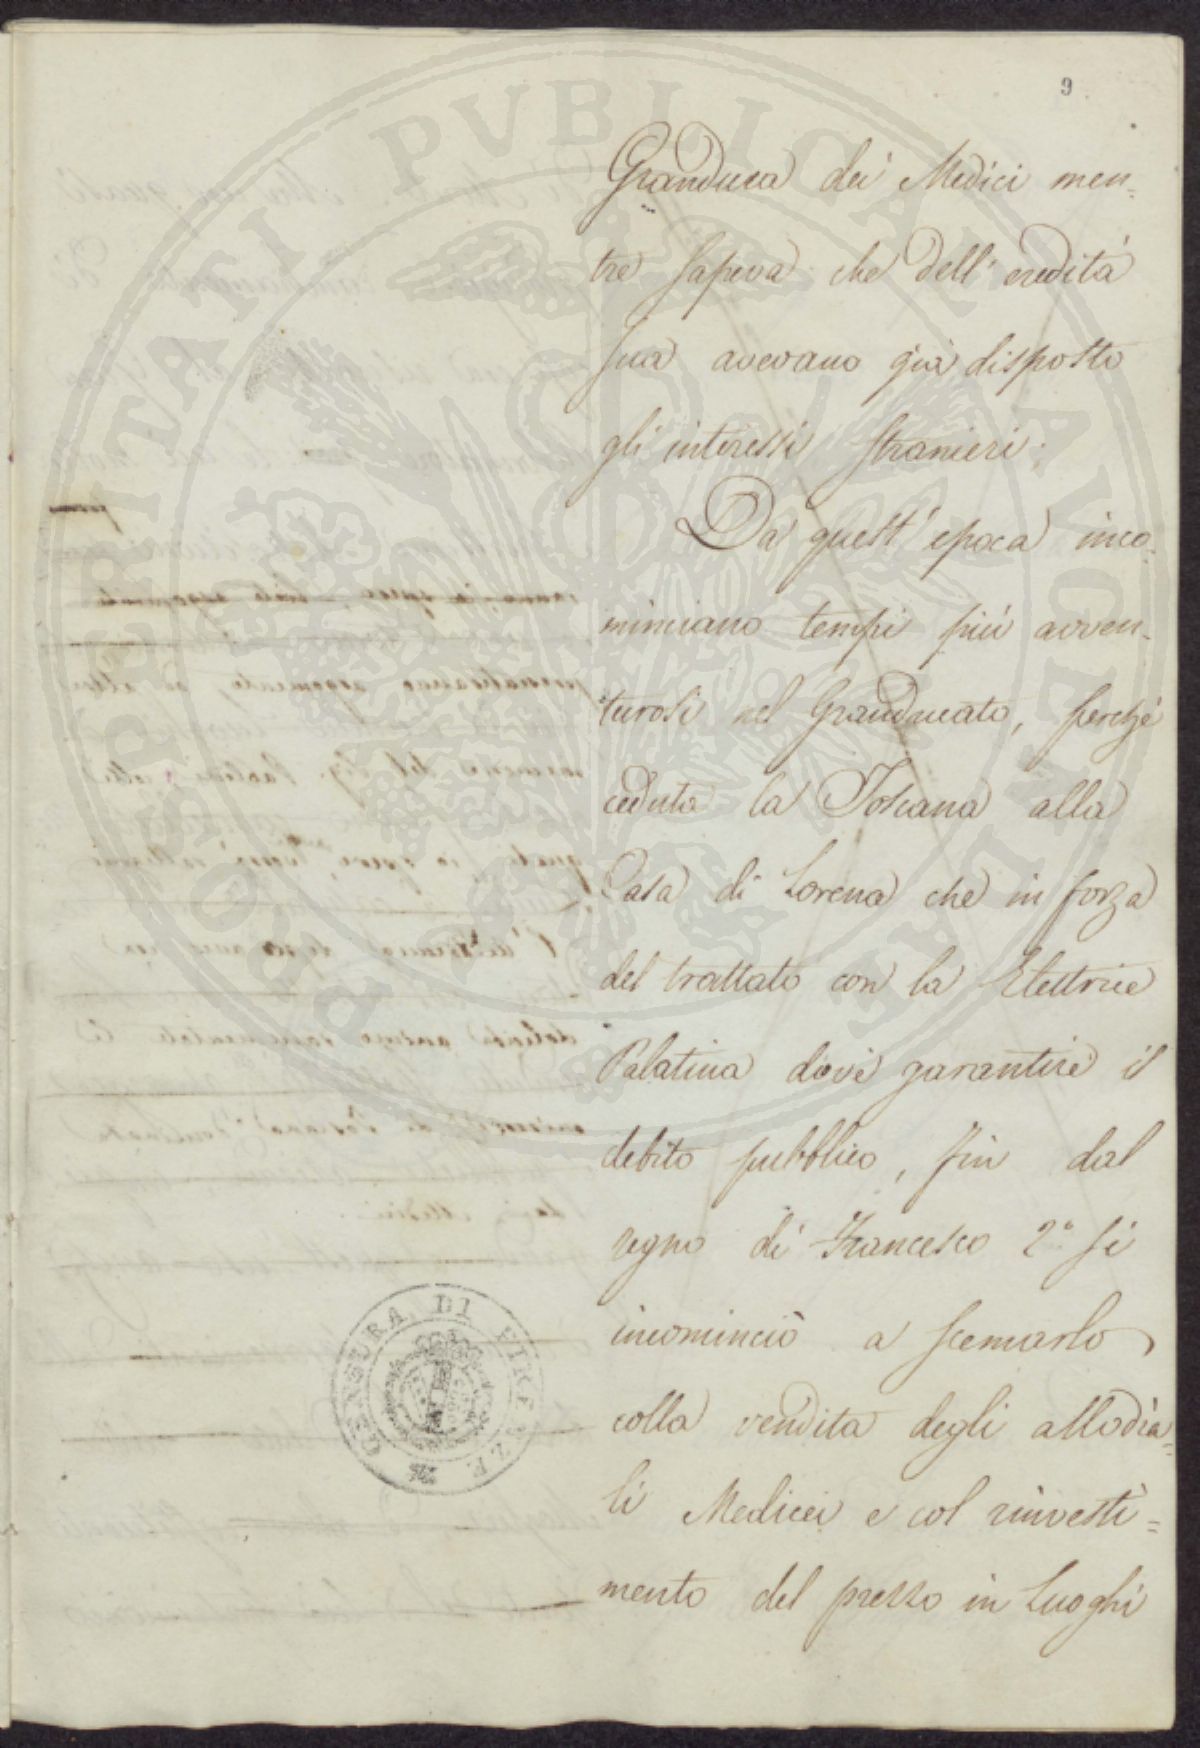 9
Granduca dei Medici men-
tre sapeva che dell'eredità
sua avevano già disposto
gli interessi stranieri.
Da quest'epoca inco-
minciano tempi più avven-
turosi nel Granducato, perchè
ceduta la Toscana alla
Casa di Lorena che in forza
del trattato con la Elettrice
Palatina dovè garantire il
debito pubblico, fin dal
regno di Francesco 2° si
incominciò a scemarlo
colla vendita degli allodia=
li Medicei e col rinvesti=
mento del prezzo in Luoghi
CENSURA DI FIRENZE
PROSPERITATI PVBLICAE AVGENDAE